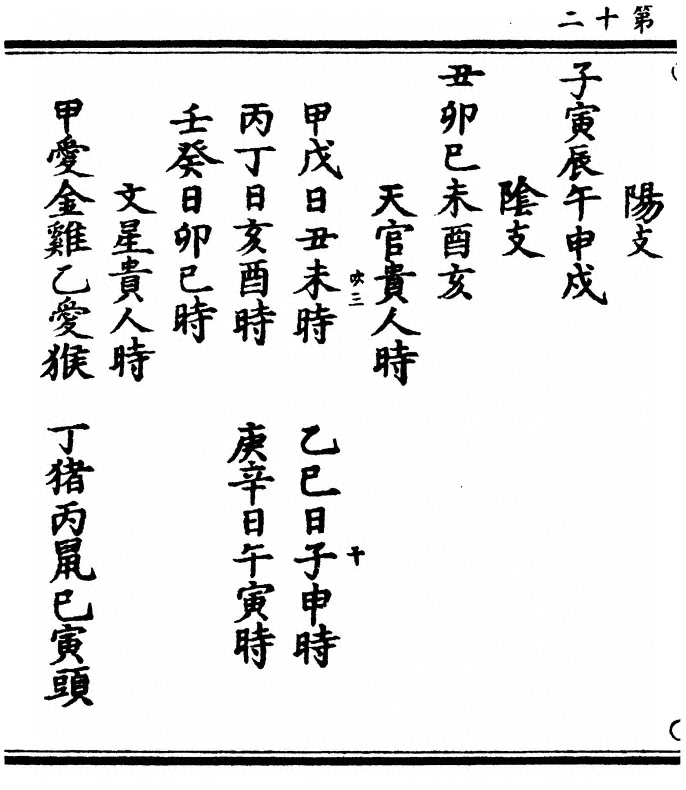 第十二
陽支
子寅辰午申戌
隂支
丑卯巳未酉亥
天官貴人時
三
干
甲戊日丑未時　乙巳日子申時
丙丁日亥酉時　庚辛日午寅時
壬癸日卯巳時
文星貴人時
甲愛金雞乙愛猴　丁猪丙鼠巳寅頭